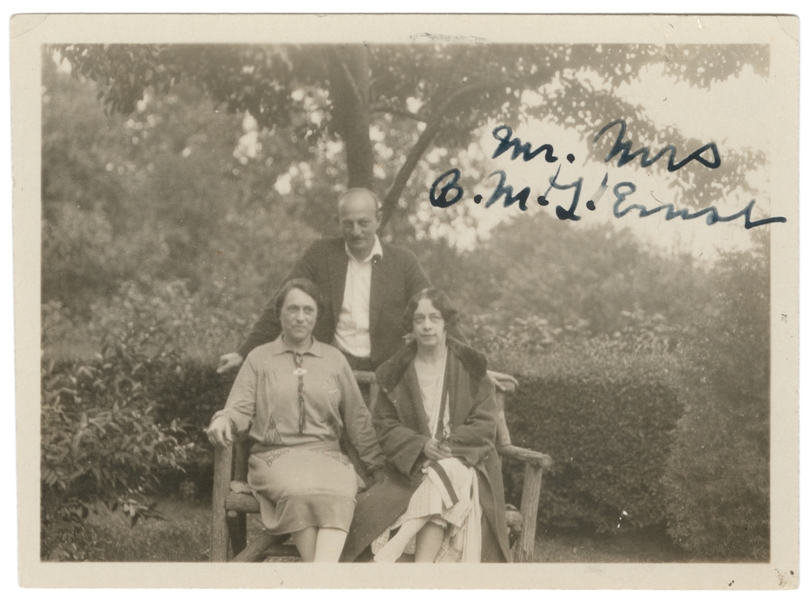 Mr. Mrs
B.M.L. Ernst